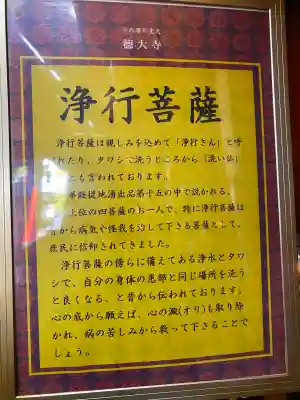 徳大寺
浄行菩薩
浄行菩薩は親しみを込めて「浄行さん」と呼
れたり、タワシで洗うところから「洗い仏」
とも言われております。
華経従地湧出品第十五の中で説かれる、
上位の四菩薩のお一人で、特に浄行菩薩は
から病気や怪我を治して下さる菩薩として、
庶民に信仰されてきました。
浄行菩薩の傍らに備えてある浄水とタワ
シで、自分の身体の患部と同じ場所を洗う
と良くなる、と昔から伝われております。
心の底から願えば、心の澱(オリ)も取り除
かれ、病の苦しみから救って下さることで
しょう。